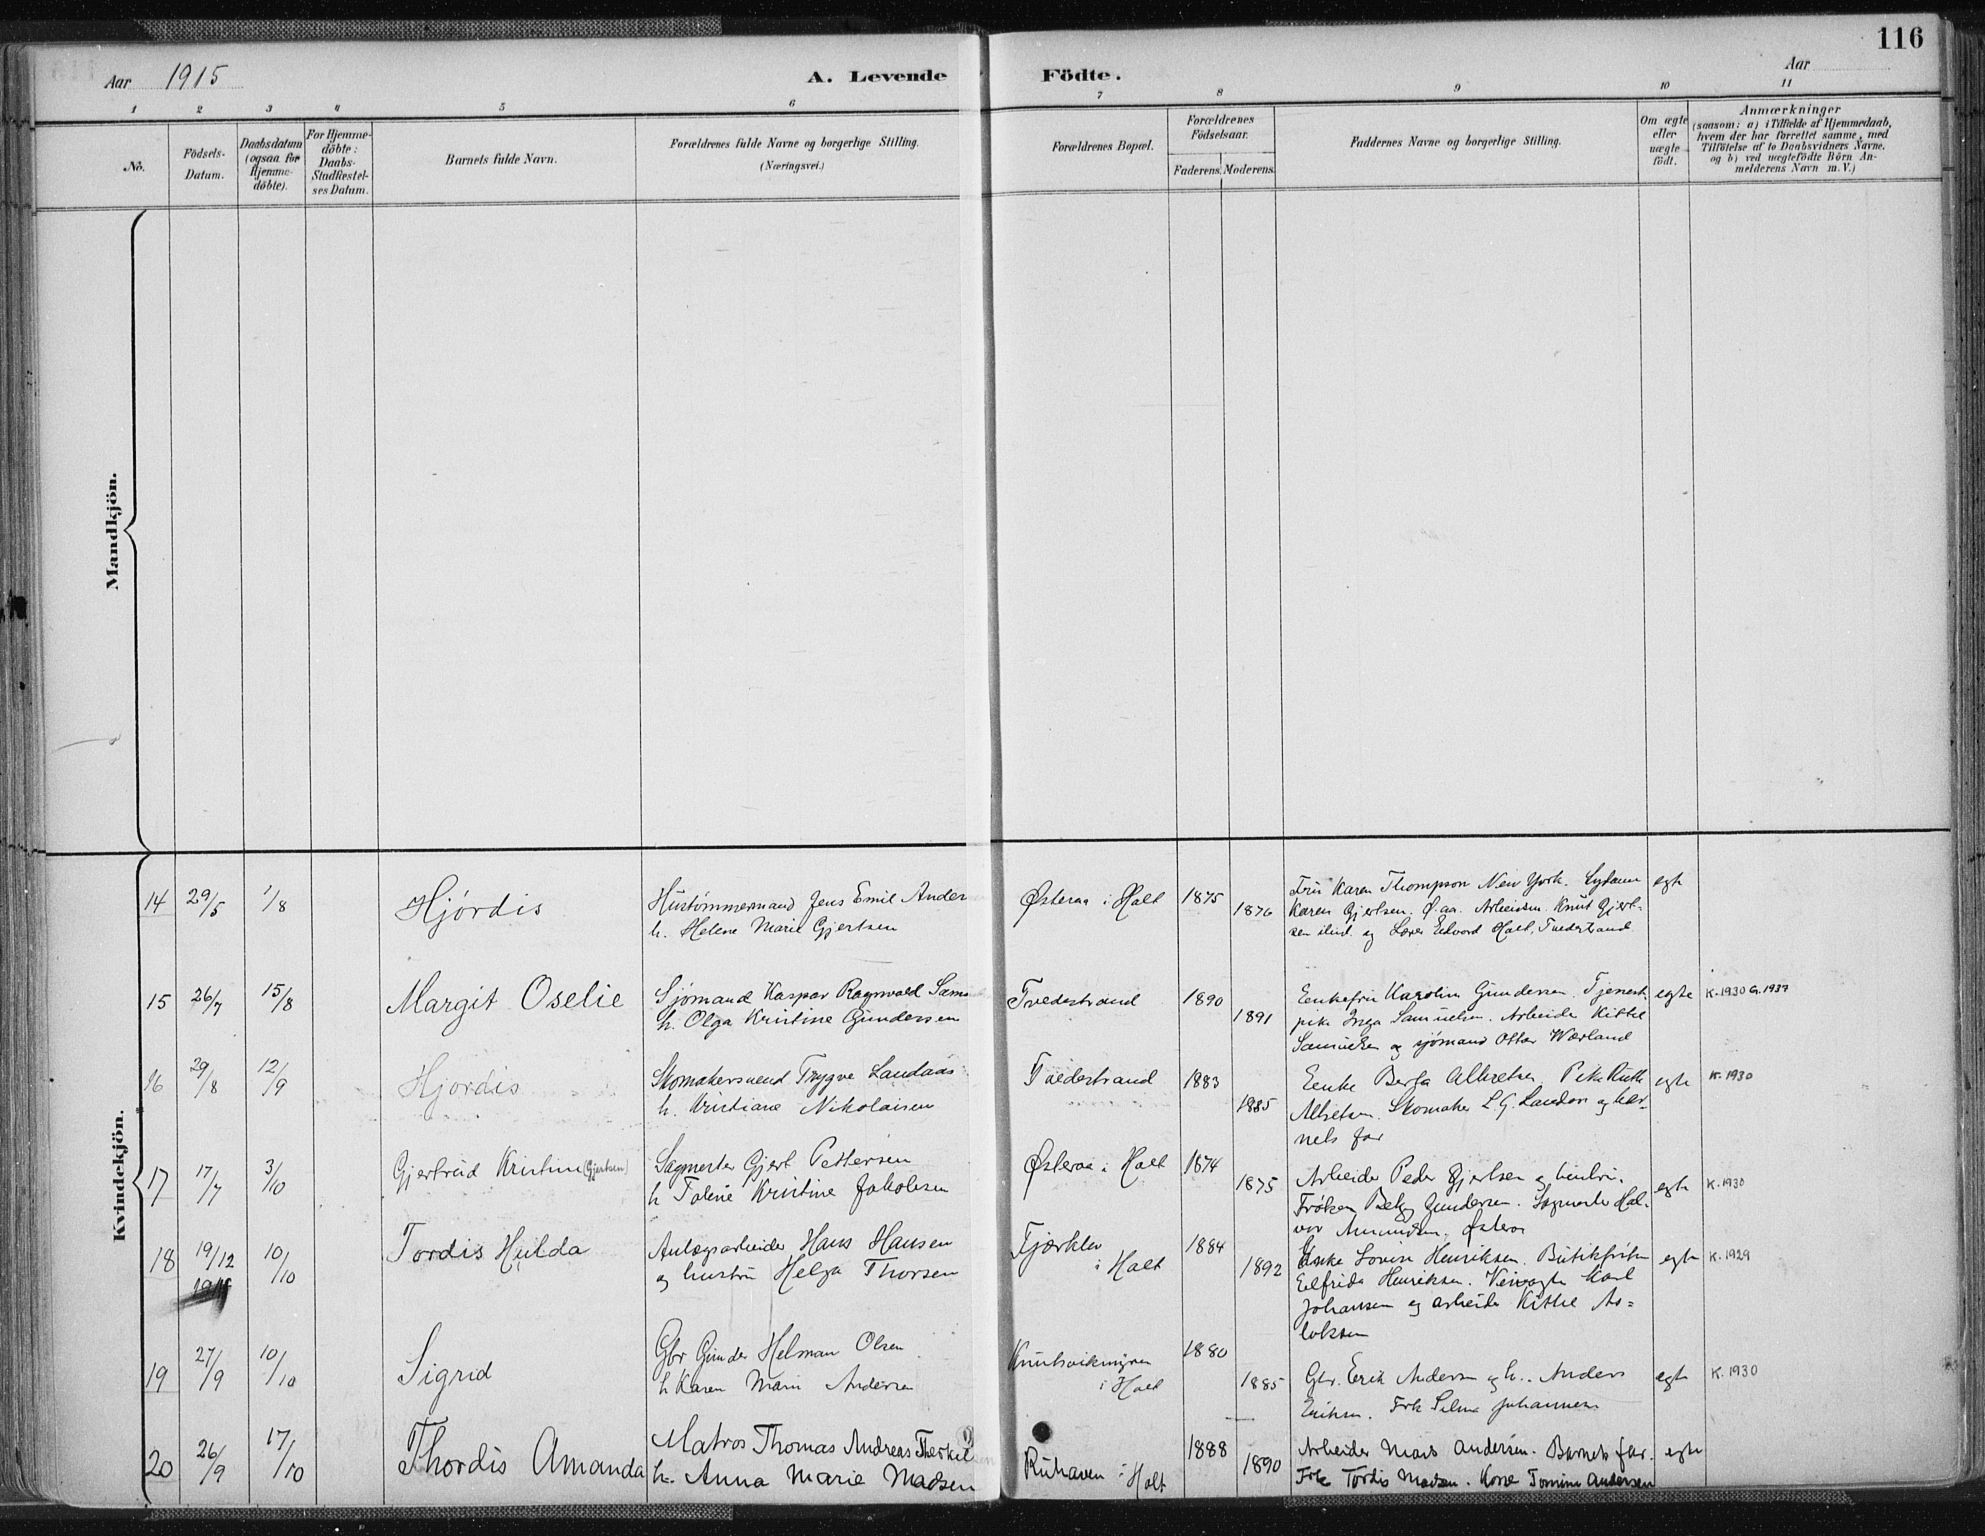 116
Aar 1915
A. Levende Födte.
Aar
1 2 3 4 5 6 7 8 9 10 11
No.
Födsels-Datum.
Daabsdatum (ogsaa for Hjemme-döbte).
For Hjemme-döbte: Daabs-Stadfæstel-ses Datum.
Barnets fulde Navn.
Forældrenes fulde Navne og borgerlige Stilling.
(Næringsvei.)
Forældrenes Bopæl.
Forældrenes Födselsaar.
Faderens. Moderens.
Faddernes Navne og borgerlige Stilling.
Om ægte eller uægte födt.
Anmærkninger
(saasom: a) i Tilfælde af Hjemmedaab, hvem der har forrettet samme, med Tilföielse af to Daabsvidners Navne, og b) ved uægtefödte Börn An-melderens Navn m. V.)
Mandkjön.
Kvindekjön.
14 29/5 1/8 Hjørdis
Hustømmermand Jens Emil Ander
h. Helene Marie Gjertsen
Østeraa i Holt 1875 1876
Fru Karen Thompson New York.
Karen Gjertsen. Ø.aa. Arbeider. Knut Gjert-
sen ibid. og Lærer Edvard Holt, Tvedestrand
egte
15 26/7 15/8 Margit Oselie
Sjømand Kaspar Ragnvald Sams
h. Olga Kristine Gundersen
Tvedestrand 1890 1891
Enkefru Karolin Gundersen. Tjenest-
pike Inga Samuelsen. Arbeider Kittel
Samuelsen og sjømand Ottar Wærland
egte K. 1930 G. 1937
16 29/8 12/9 Hjordis
Skomakersvend Trygve Landaas
h. Kristiane Nikolaisen
Tvedestrand 1883 1885
Enke Berta Albretsen Pike Ruth
Albretsen. Skomaker L. G. Landaas og bar-
nets far
egte K. 1930
17 17/7 3/10 Gjertrud Kristine (Gjertsen)
Sagmester Gjert Pettersen
h Talene Kristine Jakobsen
Østeraa i Holt 1874 1875
Arbeider Peder Gjertsen og hustru.
Frøken Gundersen. Sagmester Hal-
vor Amundsen, Østeraa
egte K. 1930
18 19/12 10/10 Tordis Hulda
Anlægsarbeider Hans Hansen
og hustru Helga Thorsen
Fjærkleiv i Holt 1884 1892
Enke Lovise Henriksen. Butikfrøken
Elfrida Henriksen. Karl
Johansen og arbeider Kittel As=
laksen
egte K. 1929
19 27/9 10/10 Sigrid
Gbr Gunder Helman Olsen
h Karen Marie Andersen
i Holt 1880 1885
Gbr. Erik Andersen og h.. Anders
Eriksen. Frk Selma Johannesen
egte K. 1930
20 26/9 17/10 Thordis Amanda
Matros Thomas Andreas Therkelsen
h. Anna Marie Madsen
Ruhaven i Holt 1888 1890
Arbeider Mads Andersen. Barnets far.
Frk Tordis Madsen. Kone Tomine Andersen
egte